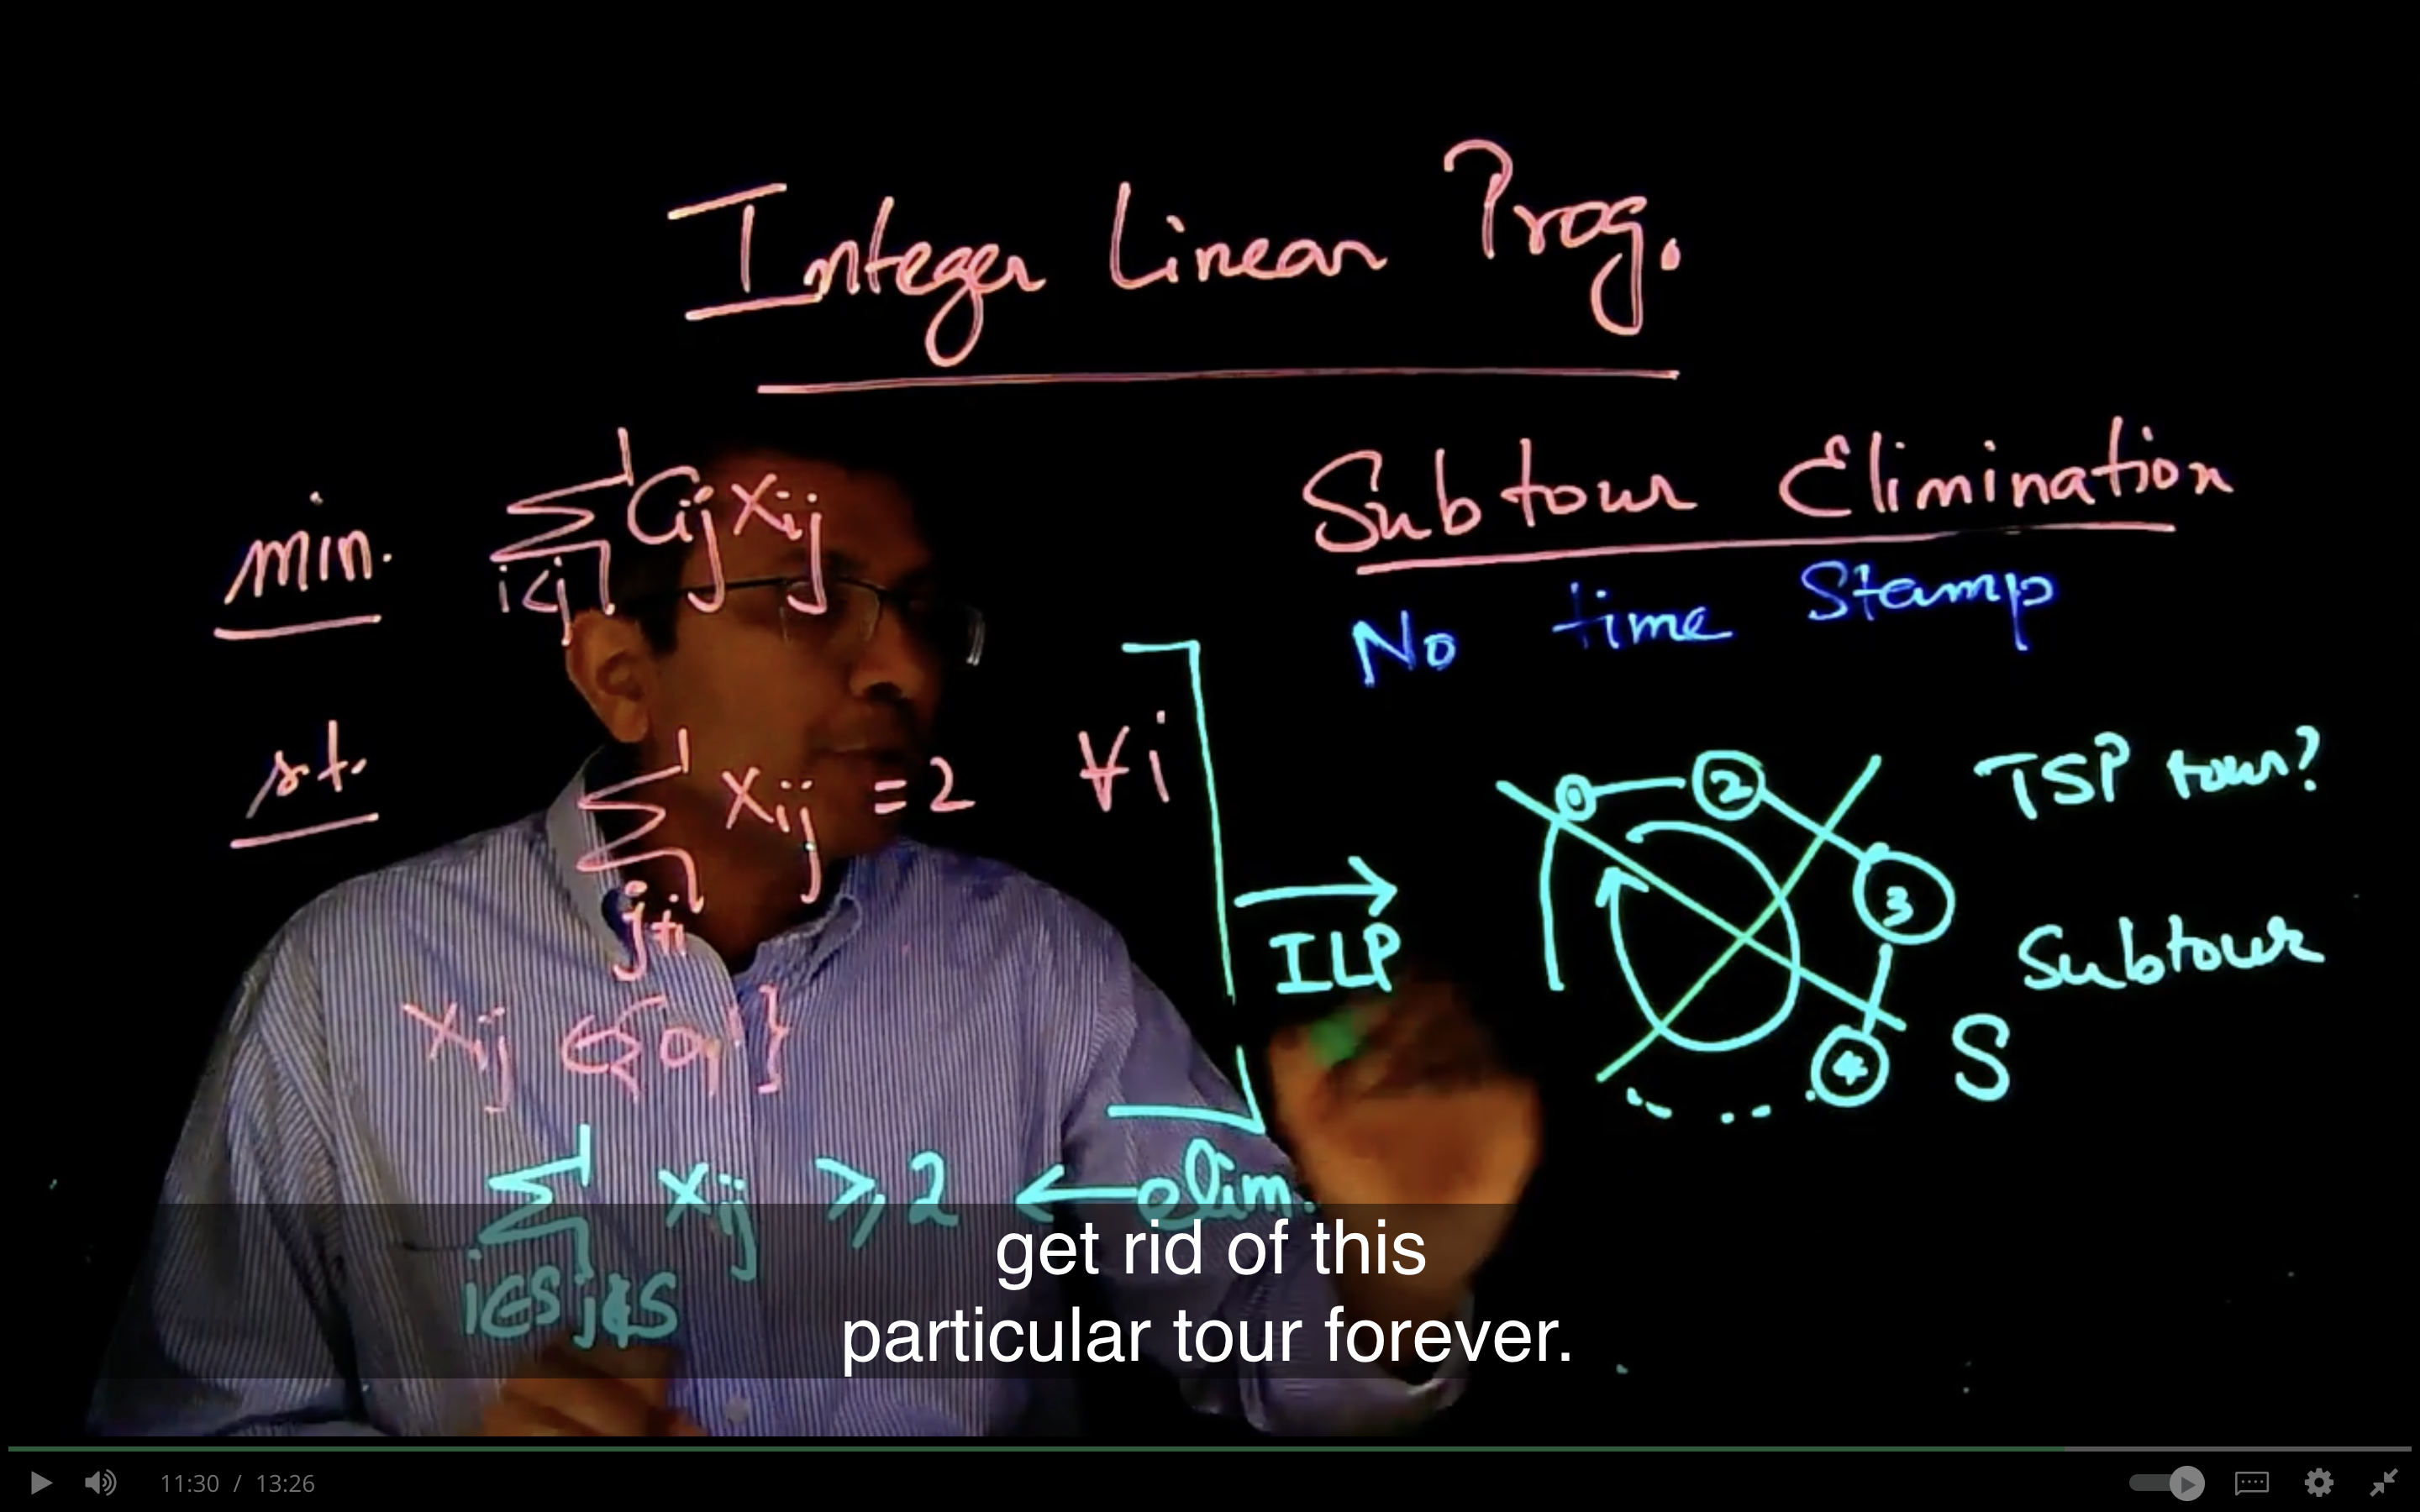 Integer Linear Prog.
min. ∑ Cij xij
i<j
s.t. ∑ xij = 2 ∀i
j≠i
xij ∈ {0,1}
∑ xij ⩾ 2 ← elim.
i∈S j∉S
Subtour Elimination
No time Stamp
→
ILP
0 2 3 4
TSP tour?
Subtour
S
get rid of this
particular tour forever.
11:30 / 13:26